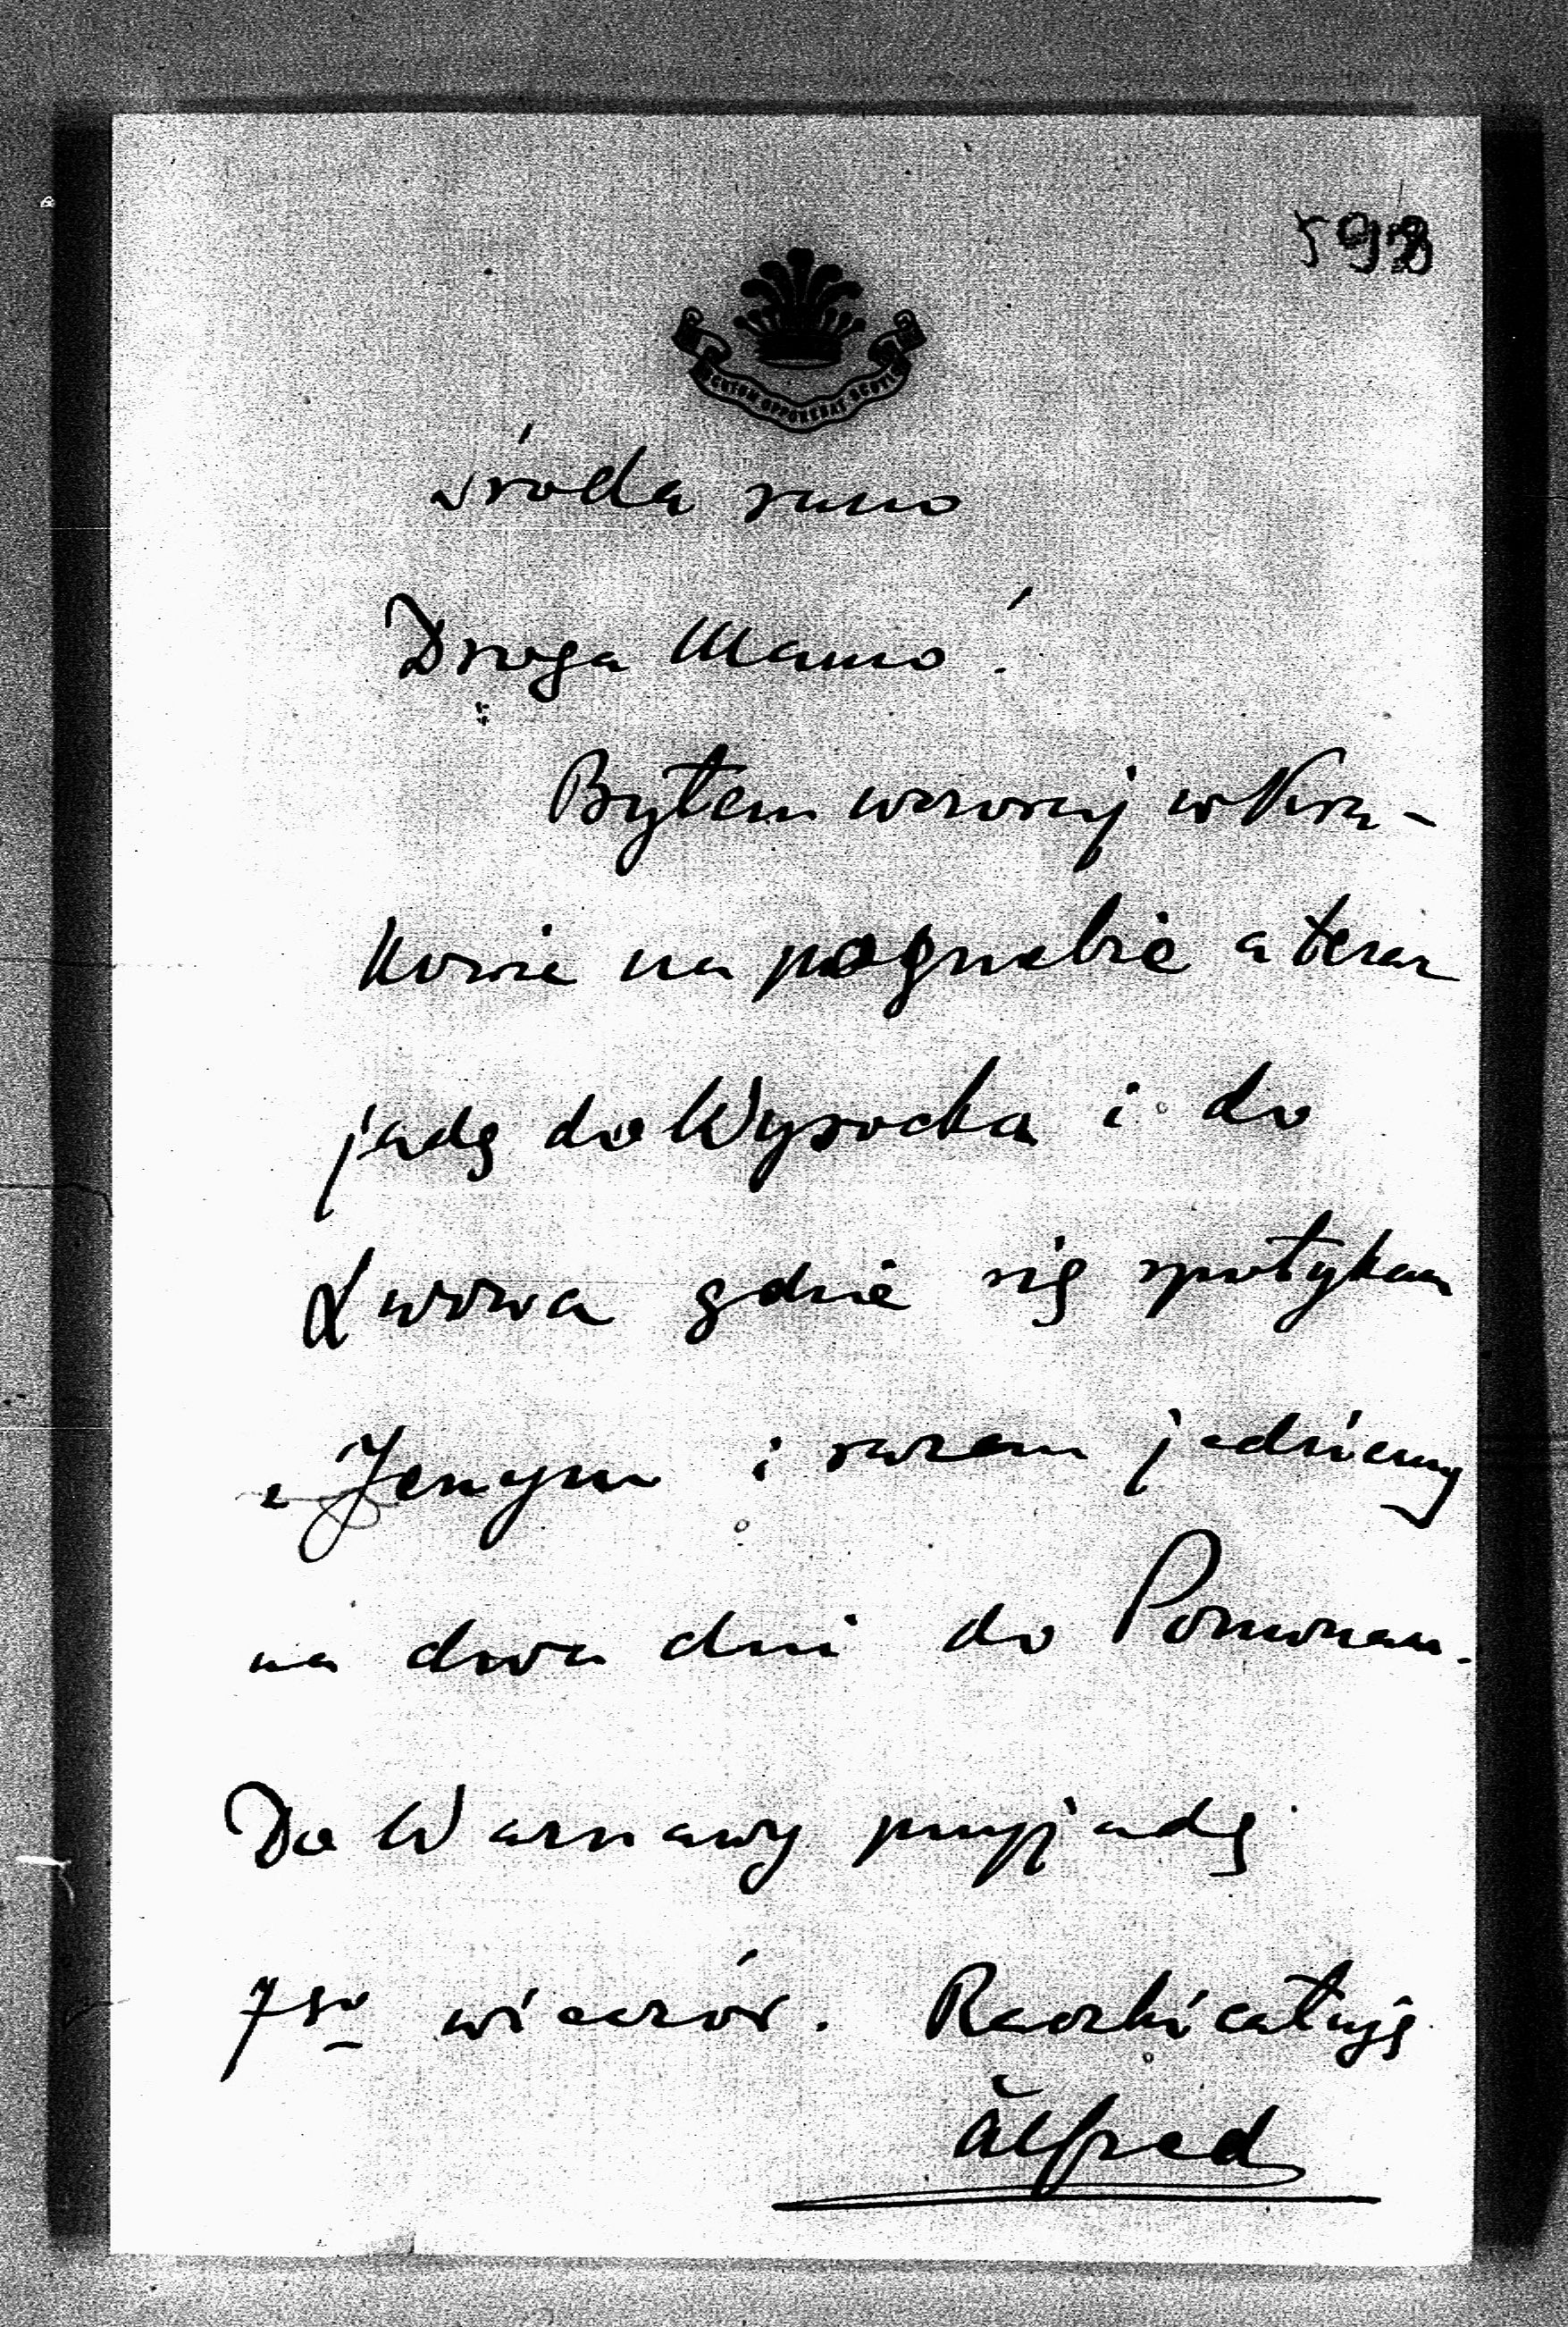 598
SCUTUM OPPONEBAT SCUTIS
środa rano
Droga Mamo!
Byłem wczoraj w Kra-
kowie na pogrzebie a teraz
jadę do Wysocka i do
Lwowa gdzie się spotykam
z Jerzym i razem jedziemy
na dwa dni do Poznania.
Do Warszawy przyjadę
7go wieczór. Rączki całuję
Alfred